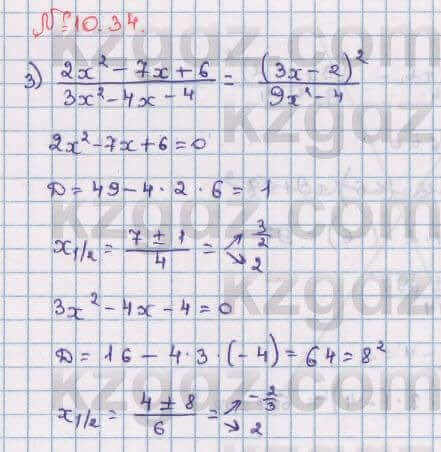 №10.34.
3) (2x² - 7x + 6)/(3x² - 4x - 4) = (3x - 2)²/(9x² - 4)
2x² - 7x + 6 = 0
D = 49 - 4 · 2 · 6 = 1
x₁/₂ = (7 ± 1)/4 = ↗ 3/2 ↘ 2
3x² - 4x - 4 = 0
D = 16 - 4 · 3 · (-4) = 64 = 8²
x₁/₂ = (4 ± 8)/6 = ↗ -2/3 ↘ 2
kzgaz.com
kzgaz
kzgaz
kzgaz